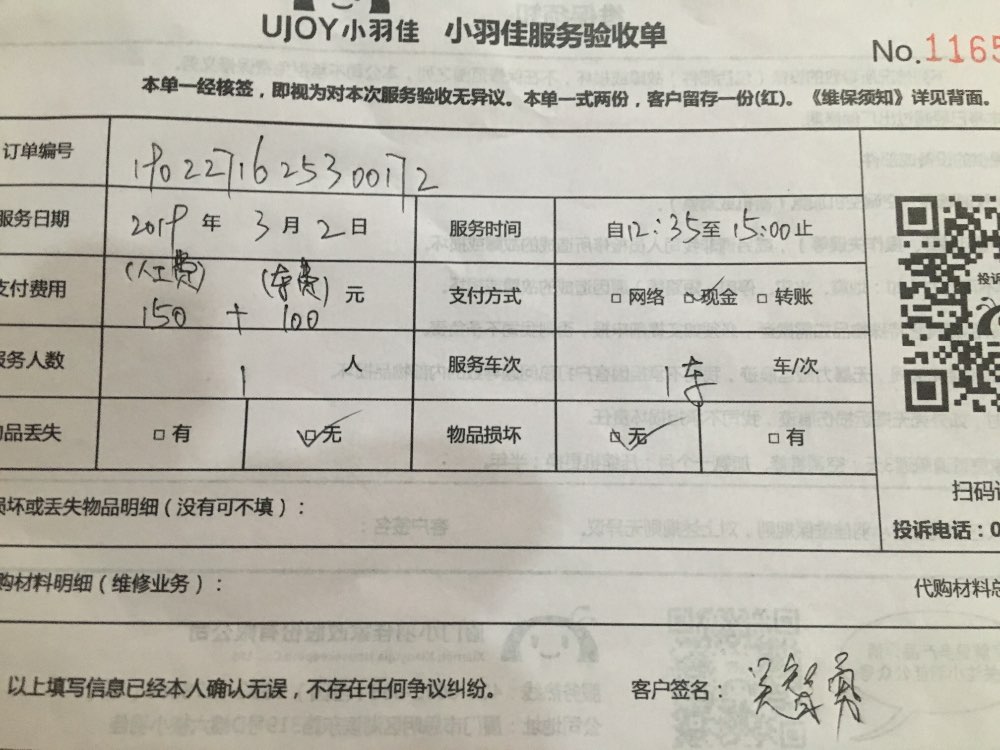 UJOY小羽佳 小羽佳服务验收单
No.1165
本单一经核签，即视为对本次服务验收无异议。本单一式两份，客户留存一份(红)。《维保须知》详见背面。
订单编号 190227162530017 2
服务日期 2019 年 3 月 2 日 服务时间 自12:35至15:00止
(人工费) (车费)
支付费用 150 + 100 元 支付方式 □ 网络 ☑ 现金 □ 转账
服务人数 1 人 服务车次 1车 车/次
物品丢失 □ 有 ☑ 无 物品损坏 ☑ 无 □ 有
损坏或丢失物品明细（没有可不填）：
扫码
投诉电话：0
购材料明细（维修业务）：
代购材料总
以上填写信息已经本人确认无误，不存在任何争议纠纷。 客户签名：